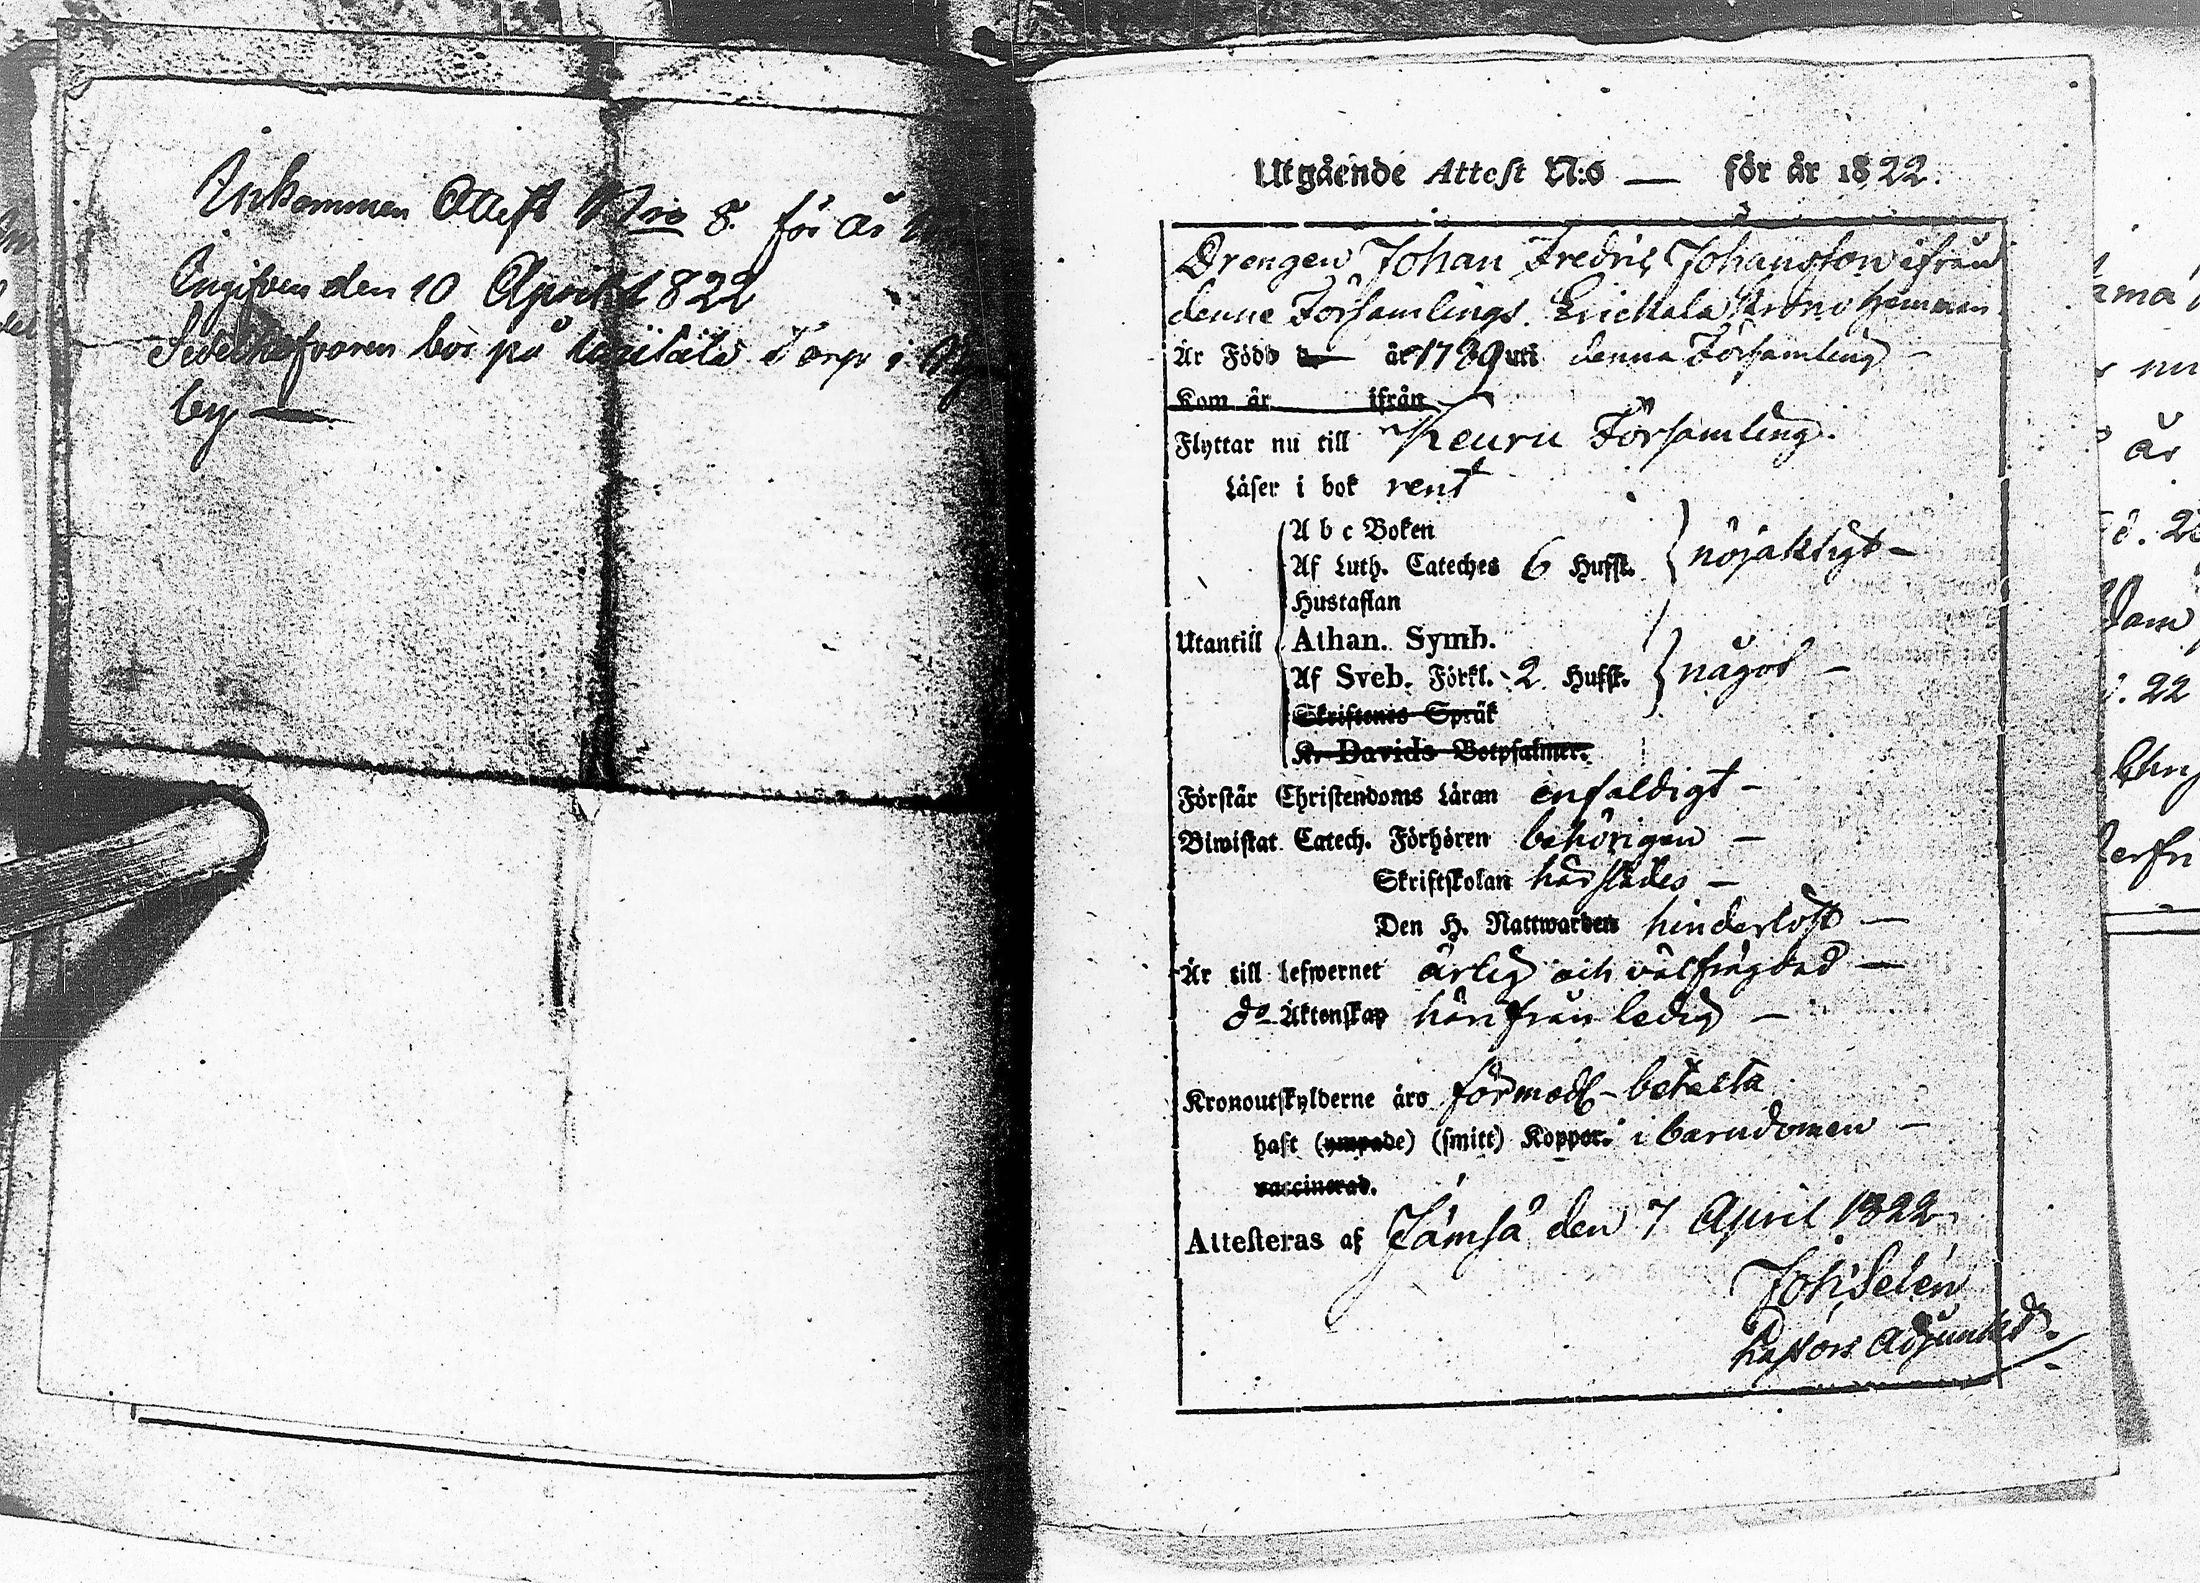 Inkommen Attest Nro 8. för år
Ingifven den 10 April 1822
Sedelhafvaren bor på Torp i
by —
Utgående Attest N:o — för år 1822.
Drengen Johan Fredric Johansson ifrån
denne Församlings. Erickala Krono Hemman
Är Född år 1789 uti denna Församling —
Kom år ifrån
Flyttar nu till Keuru Församling.
Läser i bok rent
A b c Boken
Af Luth. Cateches 6 Hufst. } nöjaktigt —
Hustaflan
Utantill Athan. Symb.
Af Sveb. Förkl. 2 Hufst. } något —
Skriftenes Språk
K. Davids Botpsalmer.
Förstår Christendoms Läran enfaldigt —
Biwistat Catech. Förhören behörigen —
Skriftskolan härstädes —
Den H. Nattwarden hinderlöst —
Är till lefwernet ärlig och välfrägdad —
do Äktenskap härifrån ledig —
Kronoutskylderne äro förmodl. betalta
haft (ympade) (smitt) Koppor. i barndomen —
vaccinerad.
Attesteras af Jämsä den 7 April 1822
Joh. Selén
Pastors Adjunkt.